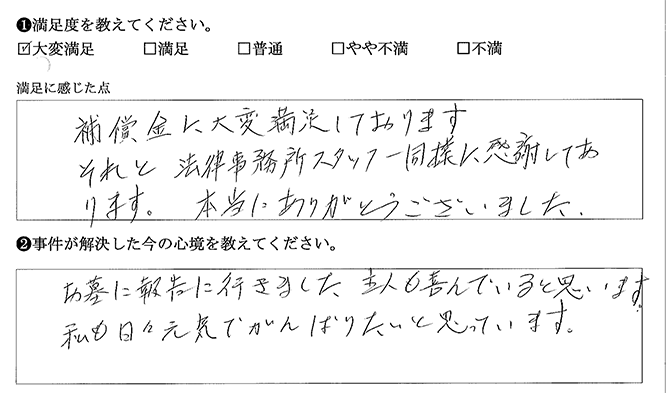 ❶満足度を教えてください。
☑大変満足 □満足 □普通 □やや不満 □不満
満足に感じた点
補償金に大変満足しております
それと 法律事務所スタッフ一同様に感謝してあ
ります。 本当にありがとうございました.
❷事件が解決した今の心境を教えてください。
お墓に報告に行きました、主人も喜んでいると思います
私も日々元気でがんばりたいと思っています。